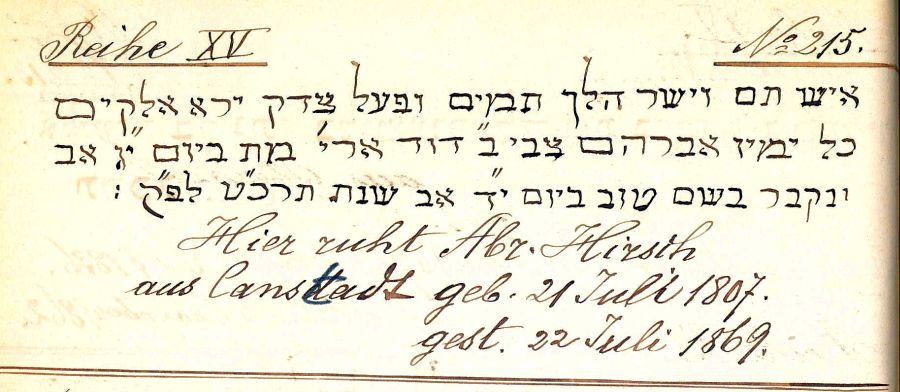 Reihe XV No 215.
איש תם וישר הלך תמים ופעל צדק ירא אלקים
כל ימיו אברהם צבי ב״ דוד ארי׳ מת ביום י״ג אב
ונקבר בשם טוב ביום י״ד אב שנת תרכ״ט לפ״ק :
Hier ruht Abr. Hirsch
aus Canstadt geb. 21 Juli 1807.
gest. 22 Juli 1869.